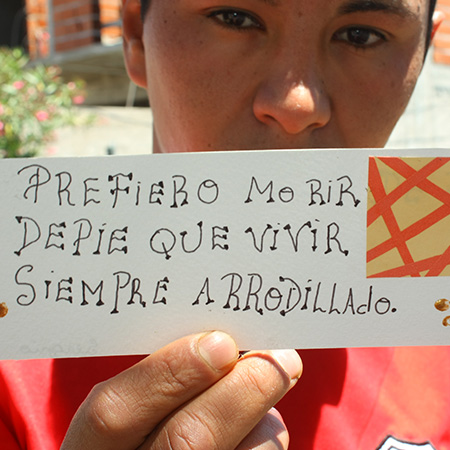 PREFIERO MORIR
DEPIE QUE VIVIR
SIEMPRE ARRODILLADO.